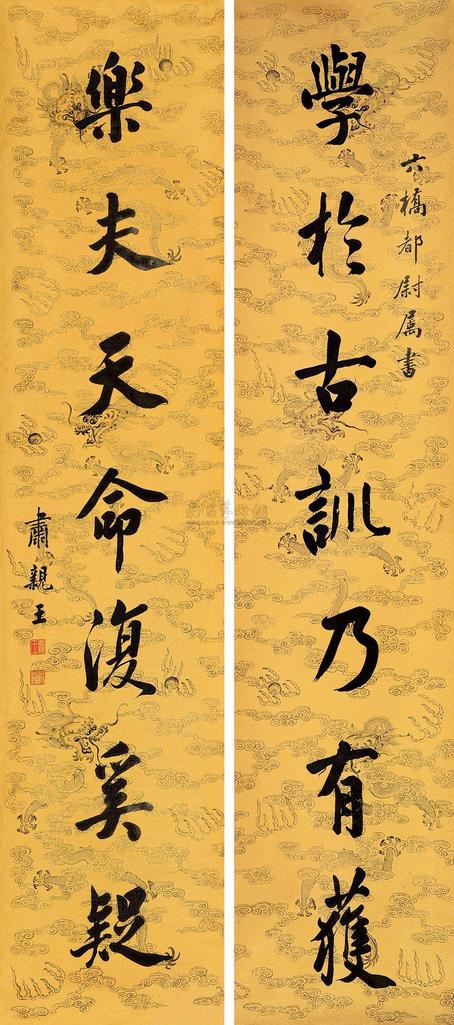 六橋都尉属書
學於古訓乃有獲
樂夫天命復奚疑
肅親王